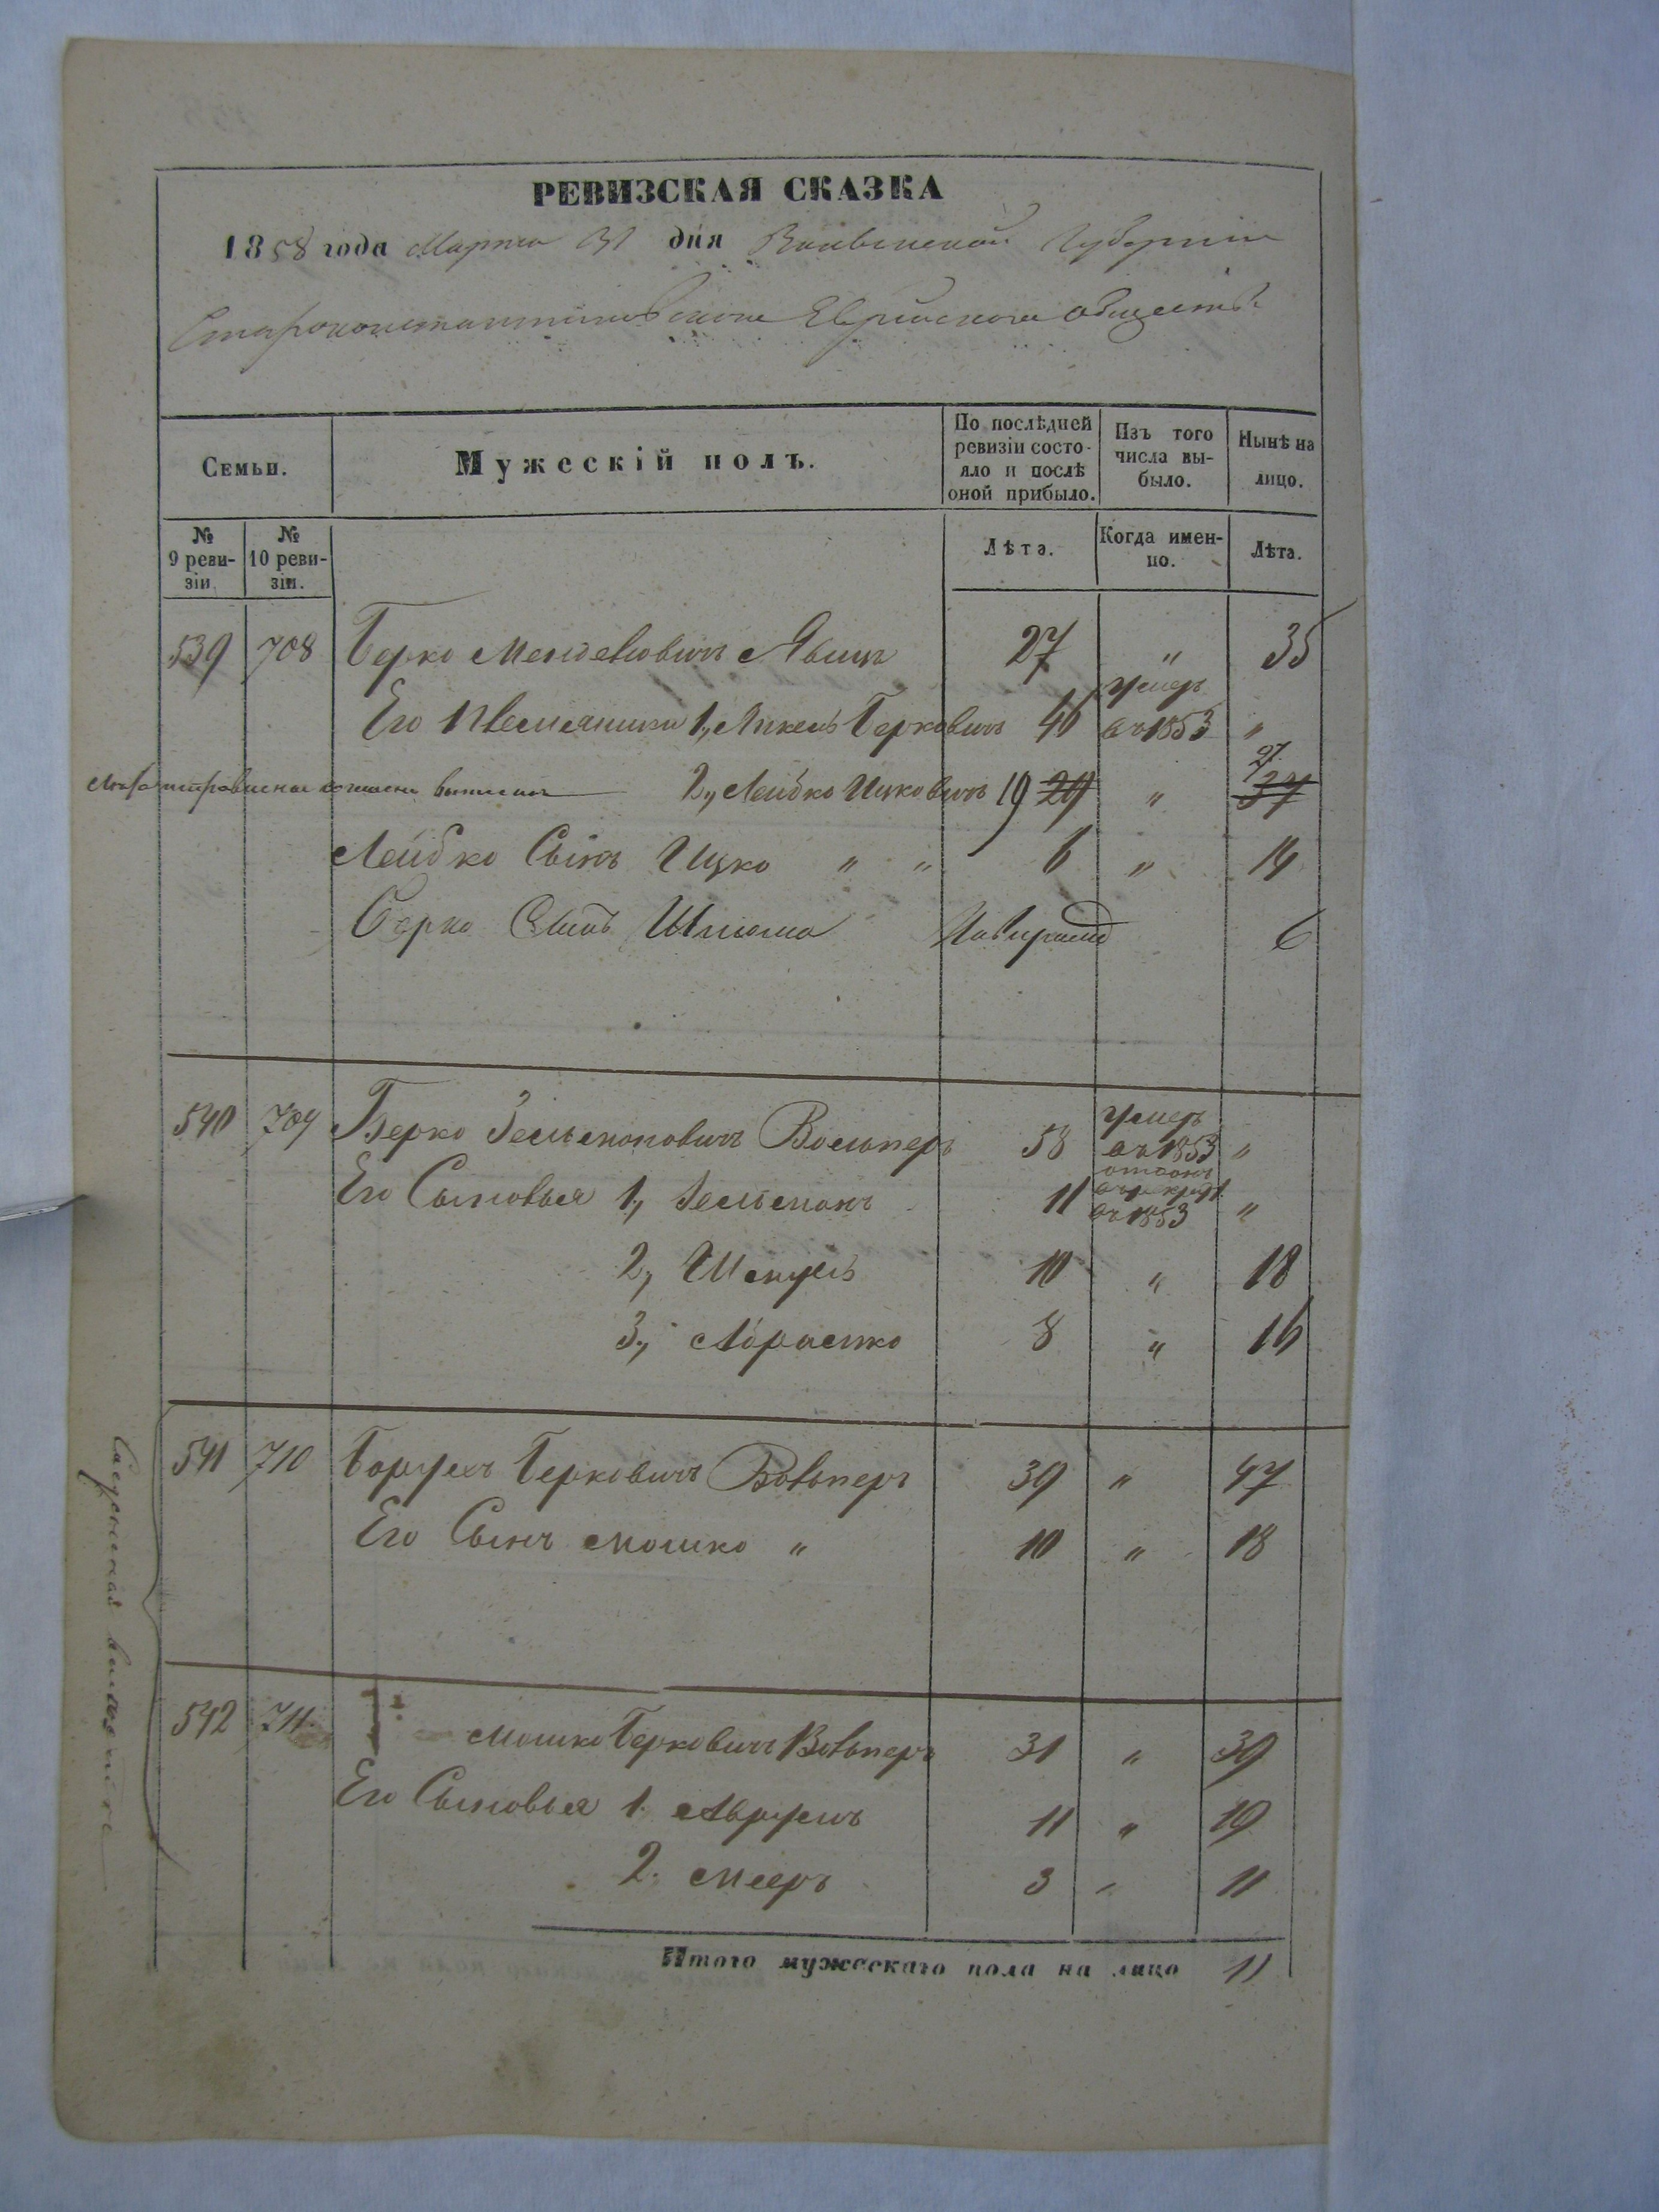 РЕВИЗСКАЯ СКАЗКА
1858 года Марта 31 дня Волынской Губернии
Староконстантиновскаго Еврейскаго общества
Семьи.
Мужескій полъ.
По послѣдней ревизіи состо-
яло и послѣ
оной прибыло.
Изъ того
числа вы-
было.
Нынѣ на
лицо.
№
9 реви-
зіи.
№
10 реви-
зіи.
Лѣта.
Когда имен-
но.
Лѣта.
539 708 Берко Менделіовичъ 27 " 35
Его Племянники 1, Берковичъ 46 умеръ въ 1853 "
2, Лейбко Ицковичъ 19 29 " 27 37
Лейбко Сынъ Ицко " " 6 " 14
Берко Сынъ Шлioма 6
540 709 Берко Зельмоновичъ Вольперъ 58 умеръ въ 1853 "
Его Сыновья 1, Зельмонъ 11 въ 1853 "
2, Шмуль 10 " 18
3, Абрамко 8 " 16
541 710 Борухъ Беркович Вольперъ 39 " 47
Его Сынъ Мошко " 10 " 18
542 711. Мошко Беркович Вольперъ 31 " 39
Его Сыновья 1. Аврумъ 11 " 19
2. Мееръ 3 " 11
Итого мужескаго пола на лицо 11